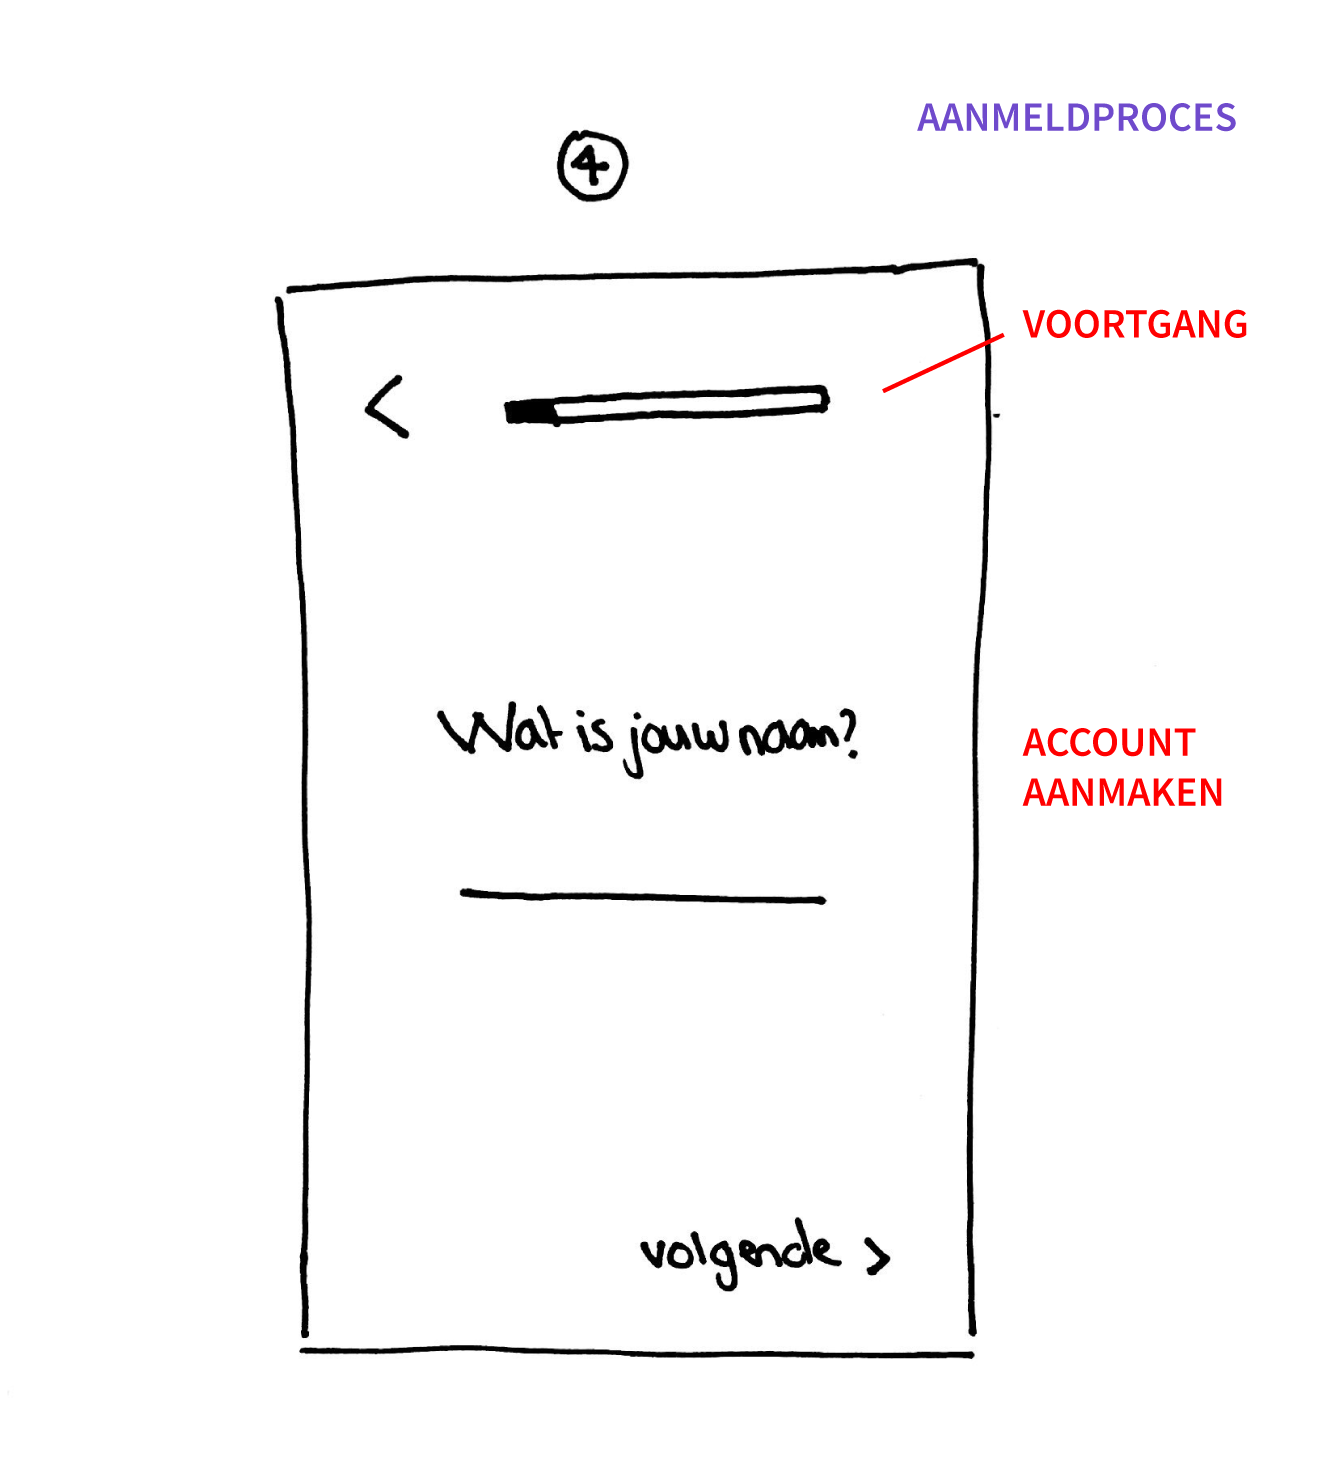 AANMELDPROCES
4
VOORTGANG
<
Wat is jouw naam?
ACCOUNT
AANMAKEN
volgende >